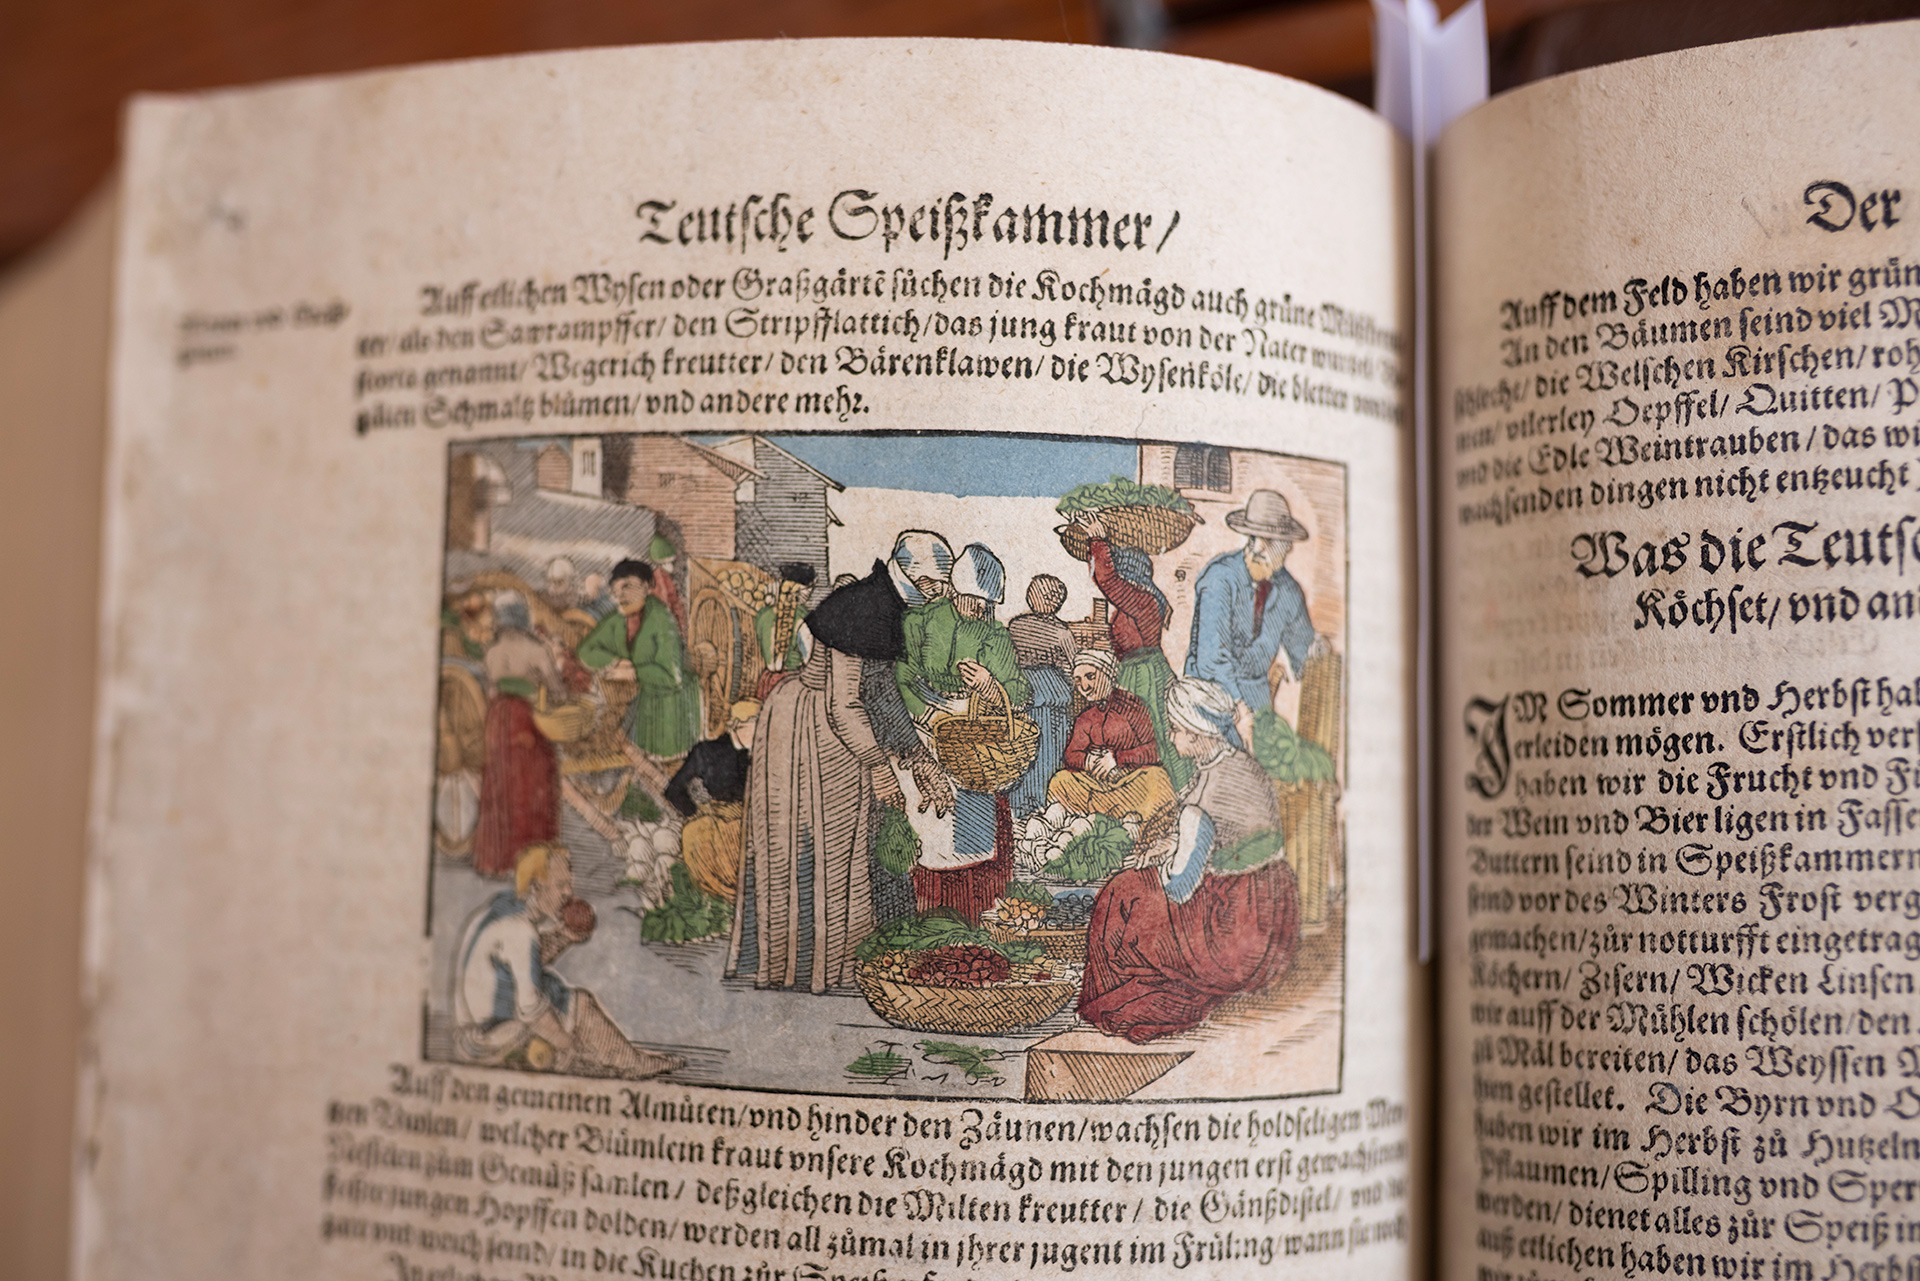 Teutsche Speißkammer/
Auff etlichen Wysen oder Graßgärtē sůchen die Kochmägd auch grüne
ter/ als den Sawrampffer/ den Stripfflattich/ das jung kraut von der Nater wurtzel
storta genannt/ Wegerich kreutter/ den Bärenklawen/ die Wysenköle/ die bletter von
gälen Schmaltz blůmen/ vnd andere mehr.
Auff den gemeinen Almůten/ vnd hinder den Zäunen/ wachsen die holdseligen
tzen Violen/ welcher Blůmlein kraut vnsere Kochmägd mit den jungen erst gewachsenen
Nesslen zům Gemüß samlen/ deßgleichen die Milten kreutter/ die Gänßdistel/ vnd die
jungen Hopffen dolden/ werden all zůmal in jhrer jugent im Früling/ wann sie noch
zart vnt weich seind/ in die Kuchen zůr
Der
Auff dem Feld haben wir grün
An den Bäumen seind viel
schlecht/ die Welschen Kirschen/ roh
vilerley Oepffel/ Quitten/
vnd die Edle Weintrauben/ das wi
wachsenden dingen nicht entzeucht
Was die Teutsc
Köchset/ vnd an
JM Sommer vnd Herbst hab
erleiden mögen. Erstlich vers
haben wir die Frucht vnd Fü
der Wein vnd Bier ligen in Fasse
Buttern seind in Speißkammern
seind vor des Winters Frost verg
gemachen/ zůr notturfft eingetrag
Köchern/ Zisern/ Wicken Linsen
wir auff der Mühlen schölen/ den
zů Mäl bereiten/ das Weyssen
gestellet. Die Byrn vnd
haben wir im Herbst zů Hutzeln
Pflaumen/ Spilling vnd Sper
werden/ dienet alles zůr Speiß in
auß etlichen haben wir im Herbst